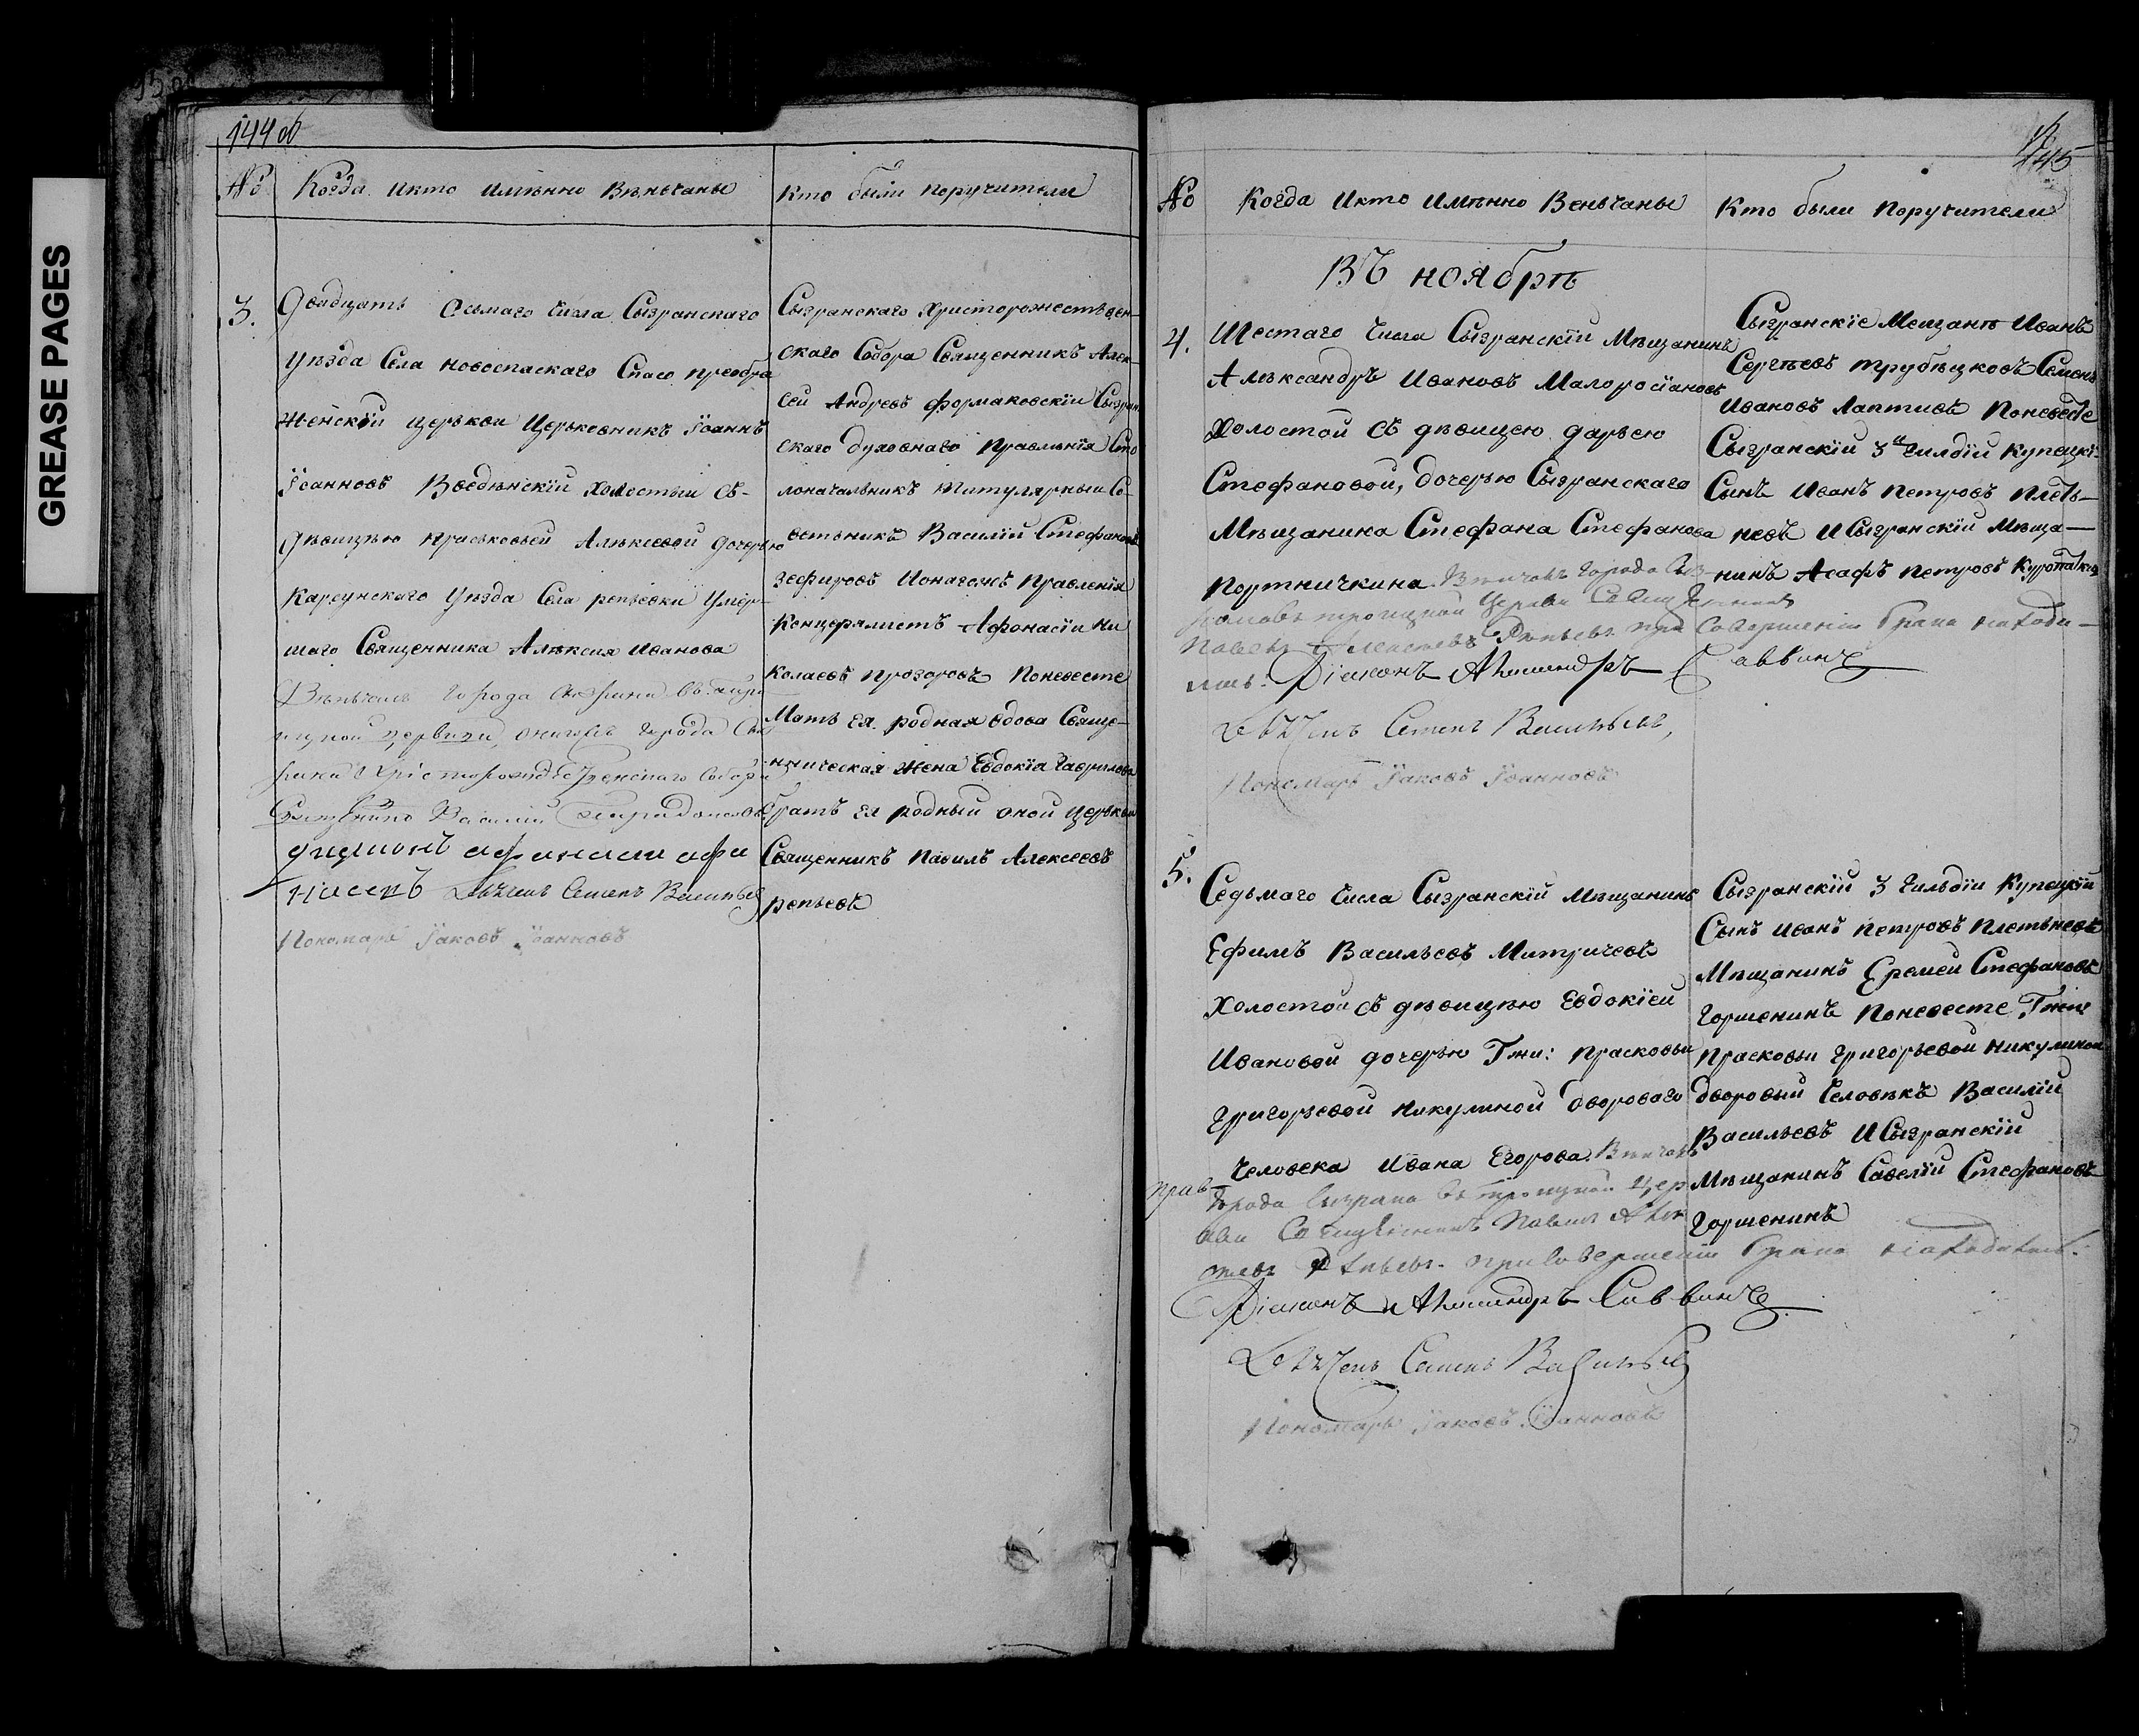 GREASE PAGES
144 об
№
Когда икто имѣнно Вѣнчаны
Кто были поручители
3.
Двадцать Осьмаго числа Сызранскаго
уѣзда Села новоспаскаго Спасо преобра
женской церькви церьковникъ Іоаннъ
Іоанновъ Введѣнскій холостый съ-
дѣвицѣю праськовьей Алѣксѣевой дочерью
Карсунскаго уѣзда Села репьевки умер-
шаго Священника Алѣксѣя Иванова
Вѣнчалъ города Сызрана въ
церкви, города Сы
рождественскаго Собора
Священникъ Василій
Дьячекъ Семенъ Васильев
Пономарь Іаковъ Іоанновъ
Сызранскаго Христорожествѣен-
скаго Собора Священникъ Алек-
сѣй Андреевъ формаковскій Сызран
скаго духовнаго правлѣнія Сто
лоначальникъ Титулярный Со-
ветьникъ Василій Стефановъ
зефировъ Ионагожъ правленія
Концерялистъ Афонасіи Ни
колаевъ прозоровъ Поневесте
Мать ея родная вдова Свяще-
нническая жена Евдокія Гаврилова
братъ ея родный оной церькви
Священникъ Павилъ Алексеевъ
репьевъ
145
№
Когда Икто имѣнно Веньчаны
Кто были поручители
ВЪ ноябрѣ
4.
Шестаго числа Сызранскій Мѣщанинъ
Алѣксандръ Ивановъ Малоросіановъ
Холостой съ дѣвицею дарьею
Стефановой, дочерью Сызранскаго
Мѣщанина Стефана Стефанова
Портничкина Вѣнчалъ города Сыз
рана въ троицкой Церкви Священникъ
Павелъ Алексѣевъ Репьевъ при Совершеніи брака находи-
лись: Діаконъ Александръ Саввинъ
Дьячекъ Семенъ Васильевъ,
Пономарь Іаковъ Іоанновъ
Сызранскіе Мещанѣ Иванъ
Сергѣевъ трубѣцковъ Семенъ
Ивановъ Лаптивъ Поневесте
Сызранскій 3й Гилдіи Купецкі
Сынъ Иванъ Петровъ Плеть-
невъ И Сызранскій Мѣща-
нинъ Асафъ Петровъ Куропаткин
5.
Седьмаго числа Сызранскій Мѣщанинъ
Ефимъ Васильевъ Митричевъ
Холостой съ дѣвицѣю Евдокіей
Ивановой дочерью Гжи: прасковьи
григорьевой никулиной двороваго
человека Ивана Егорова. Вѣнчалъ
города Сызрана въ троицкой цер
кви Священникъ Павелъ Алек
сѣевъ Репьевъ. при Совершеніи брака находились:
Діаконъ Александръ Саввинъ
Дьячекъ Семенъ Васильев
Пономарь Іаковъ Іоанновъ
Сызранскій 3 Гильдіи Купецкій
Сынъ Иванъ Петровъ Плетьневъ
Мѣщанинъ Еремей Стефановъ
Горшенинъ Поневесте Гжи
прасковьи григорьевой никулиной
дворовый человѣкъ Василій
Васильевъ И Сызранскій
Мѣщанинъ Савелій Стефановъ
Горшенинъ